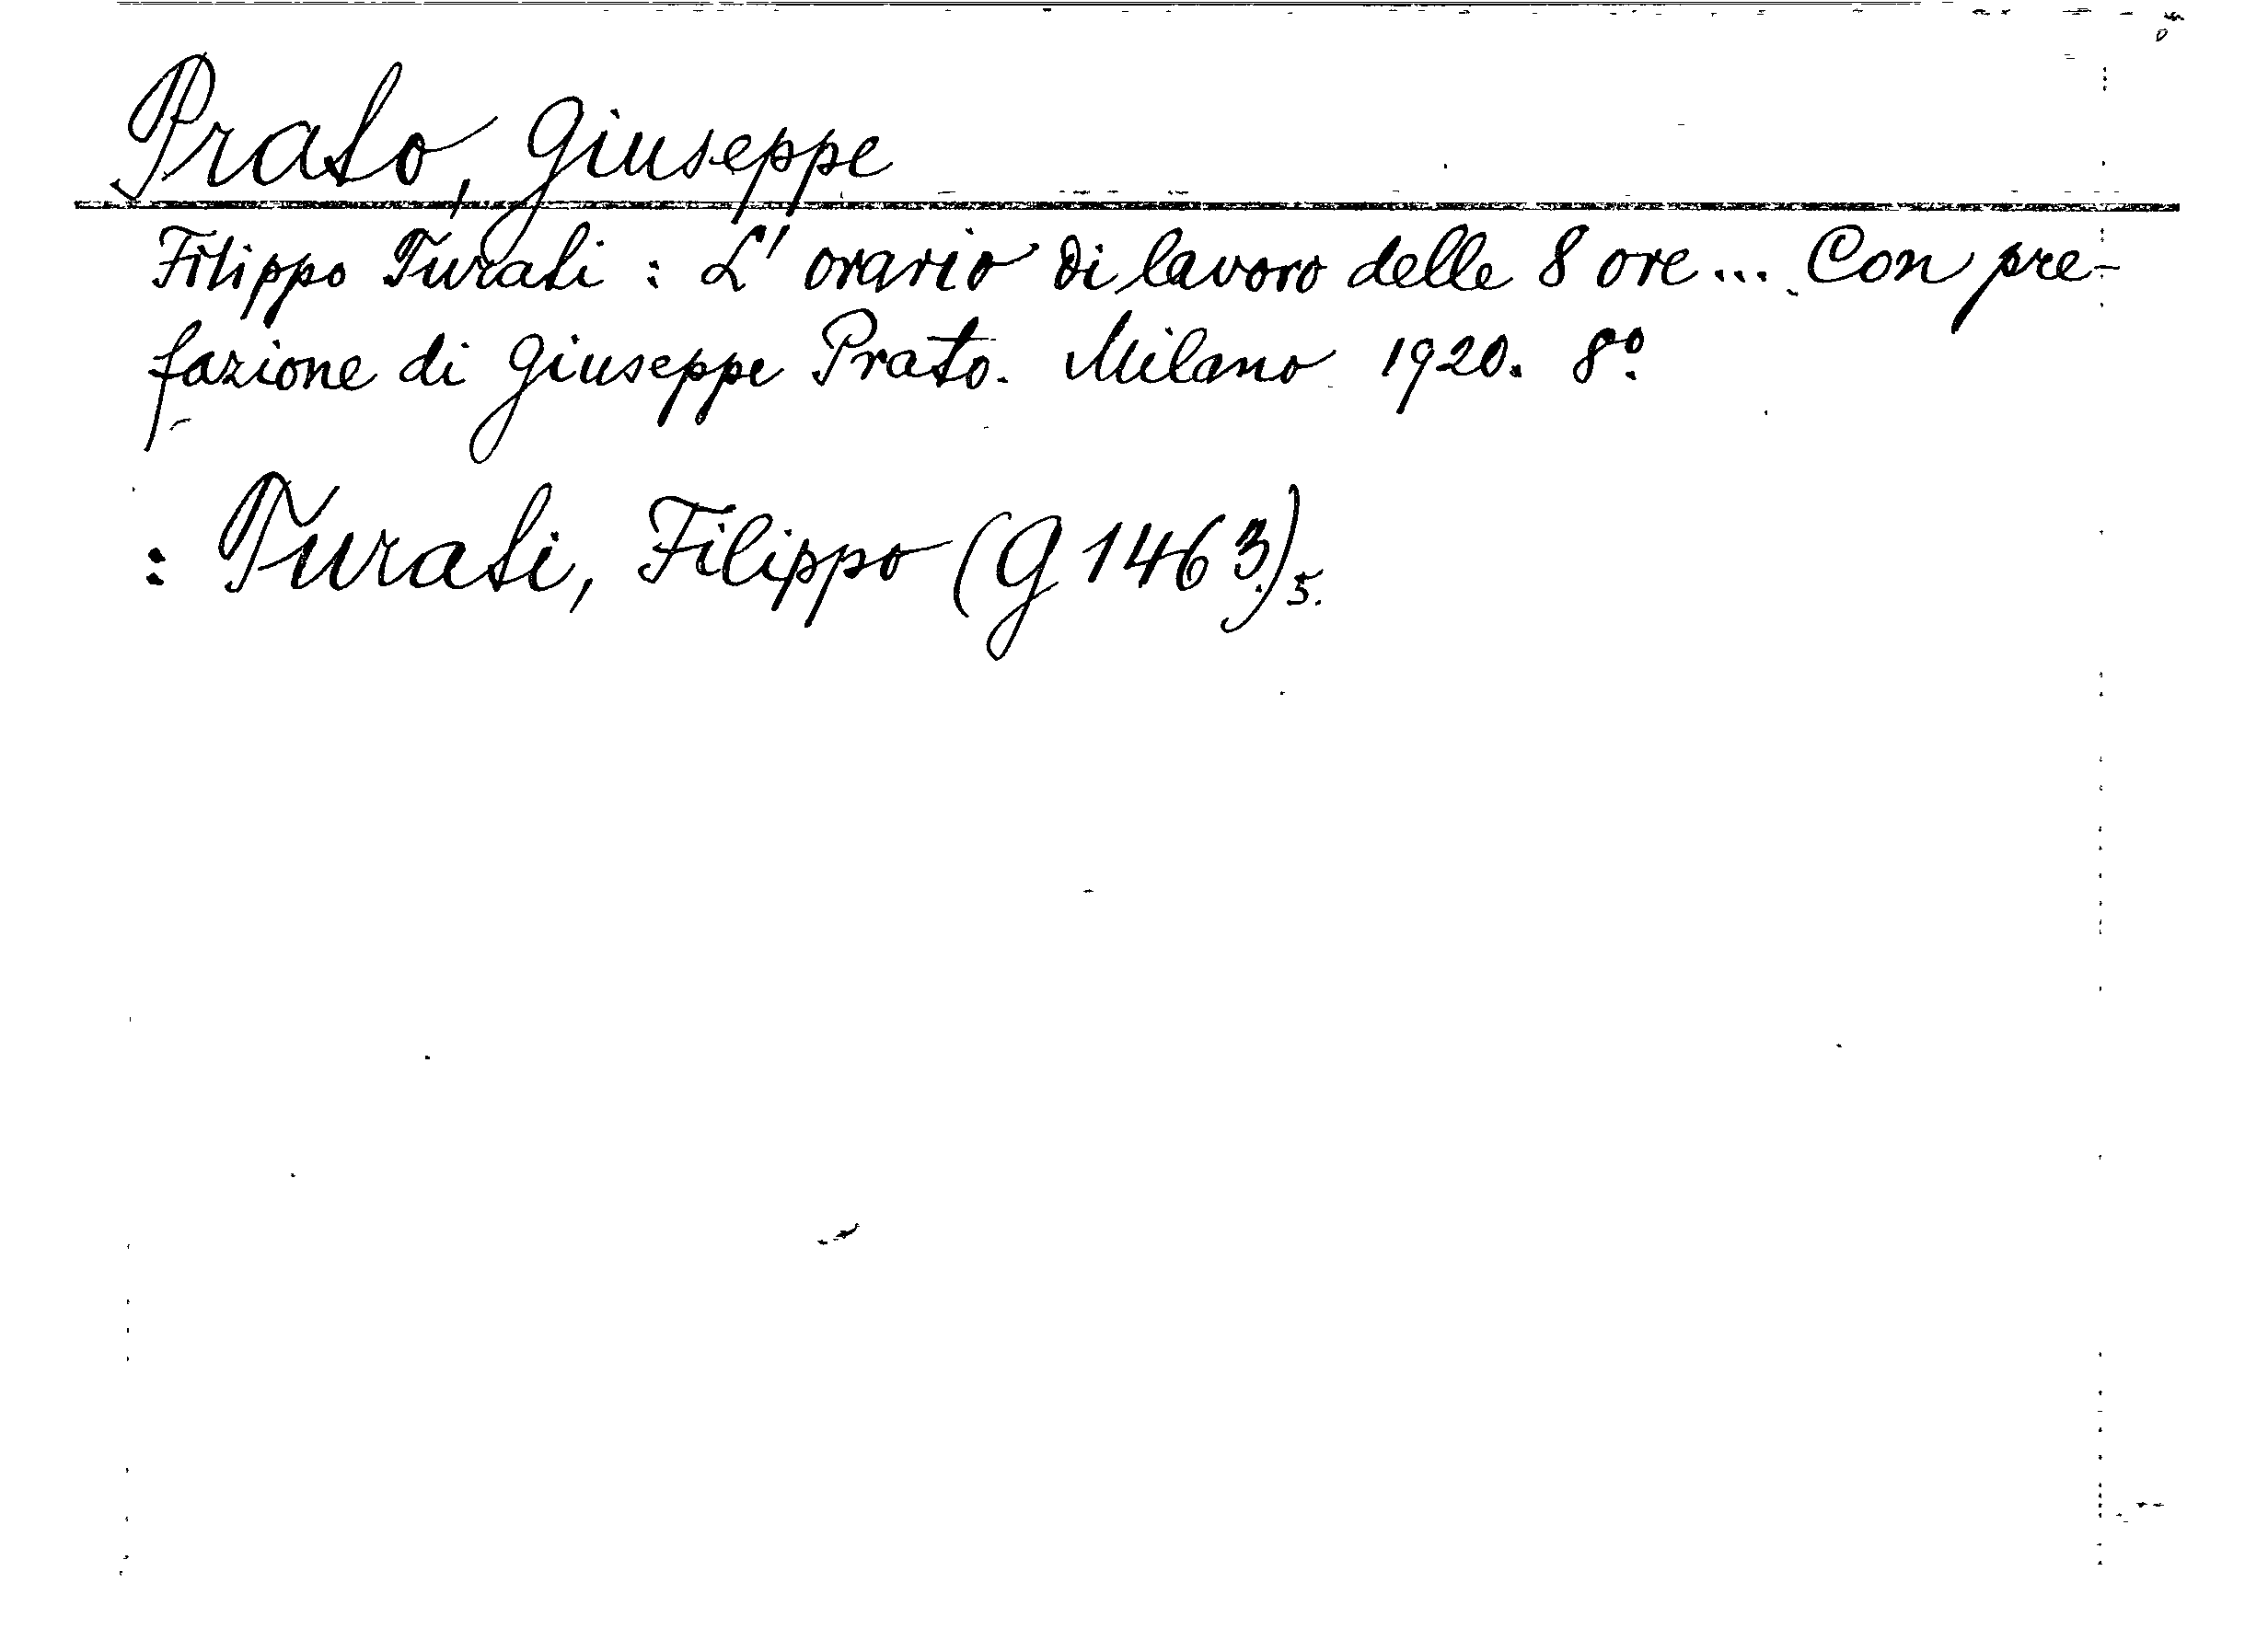 Prato, Giuseppe
Filippo Turati : L' orario di lavoro delle 8 ore ... Con pre-
fazione di Giuseppe Prato. Milano 1920. 8º.
: Turati, Filippo (G 1463)5.